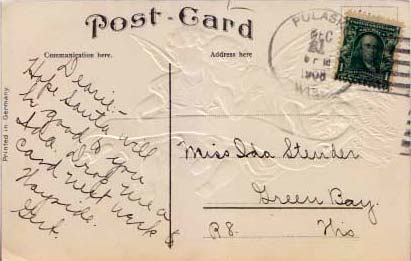 Post-Card
Communication here.
Address here
Printed in Germany
PULASKI
DEC
21
1908
WIS.
Dearie:-
Hope Santa will
be good to you
Ida. Drop me a
card next week to
Wayside.
Gert.
Miss Ida Stender
Green Bay.
R8. Wis